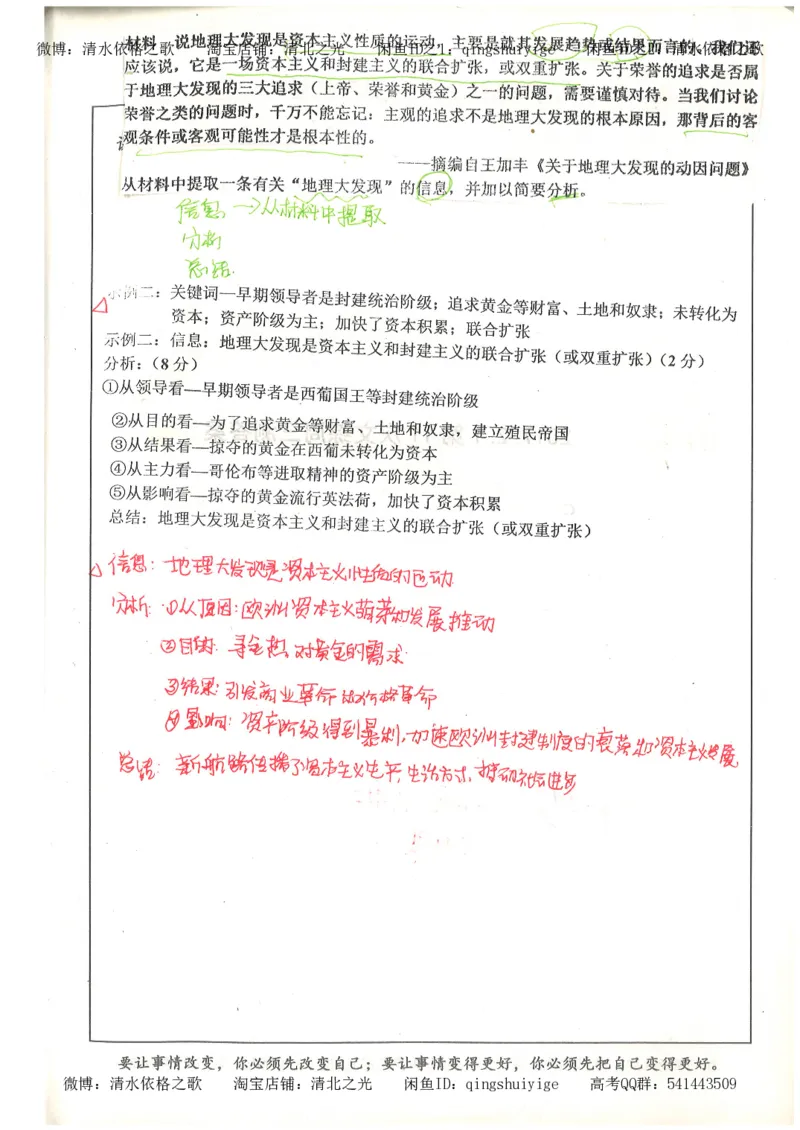 材料 说地理大发现是资本主义性质的运动,主要是就其发展趋势或结果而言的。我们还
微博:清水依格之歌 淘宝店铺:清北之光 闲鱼ID:qingshuiyige
应该说,它是一场资本主义和封建主义的联合扩张,或双重扩张。关于荣誉的追求是否属
于地理大发现的三大追求(上帝、荣誉和黄金)之一的问题,需要谨慎对待。当我们讨论
荣誉之类的问题时,千万不能忘记:主观的追求不是地理大发现的根本原因,那背后的客
观条件或客观可能性才是根本性的。
——摘编自王加丰《关于地理大发现的动因问题》
从材料中提取一条有关“地理大发现”的信息,并加以简要分析。
信息→从材料中提取
分析
总结
示例二:关键词—早期领导者是封建统治阶级;追求黄金等财富、土地和奴隶;未转化为
资本;资产阶级为主;加快了资本积累;联合扩张
示例二:信息:地理大发现是资本主义和封建主义的联合扩张(或双重扩张)(2分)
分析:(8分)
①从领导看—早期领导者是西葡国王等封建统治阶级
②从目的看—为了追求黄金等财富、土地和奴隶,建立殖民帝国
③从结果看—掠夺的黄金在西葡未转化为资本
④从主力看—哥伦布等进取精神的资产阶级为主
⑤从影响看—掠夺的黄金流行英法荷,加快了资本积累
总结:地理大发现是资本主义和封建主义的联合扩张(或双重扩张)
信息:地理大发现是资本主义性质的运动
分析:①从原因:欧洲资本主义萌芽和发展推动
②目的:寻金热,对黄金的需求
③结果:引发商业革命和价格革命
④影响:资产阶级得到暴利,加速欧洲封建制度的衰落和资本主义发展
总结:新航路传播了资本主义生产生活方式,推动社会进步
要让事情改变,你必须先改变自己;要让事情变得更好,你必须先把自己变得更好。
微博:清水依格之歌 淘宝店铺:清北之光 闲鱼ID:qingshuiyige 高考QQ群:541443509